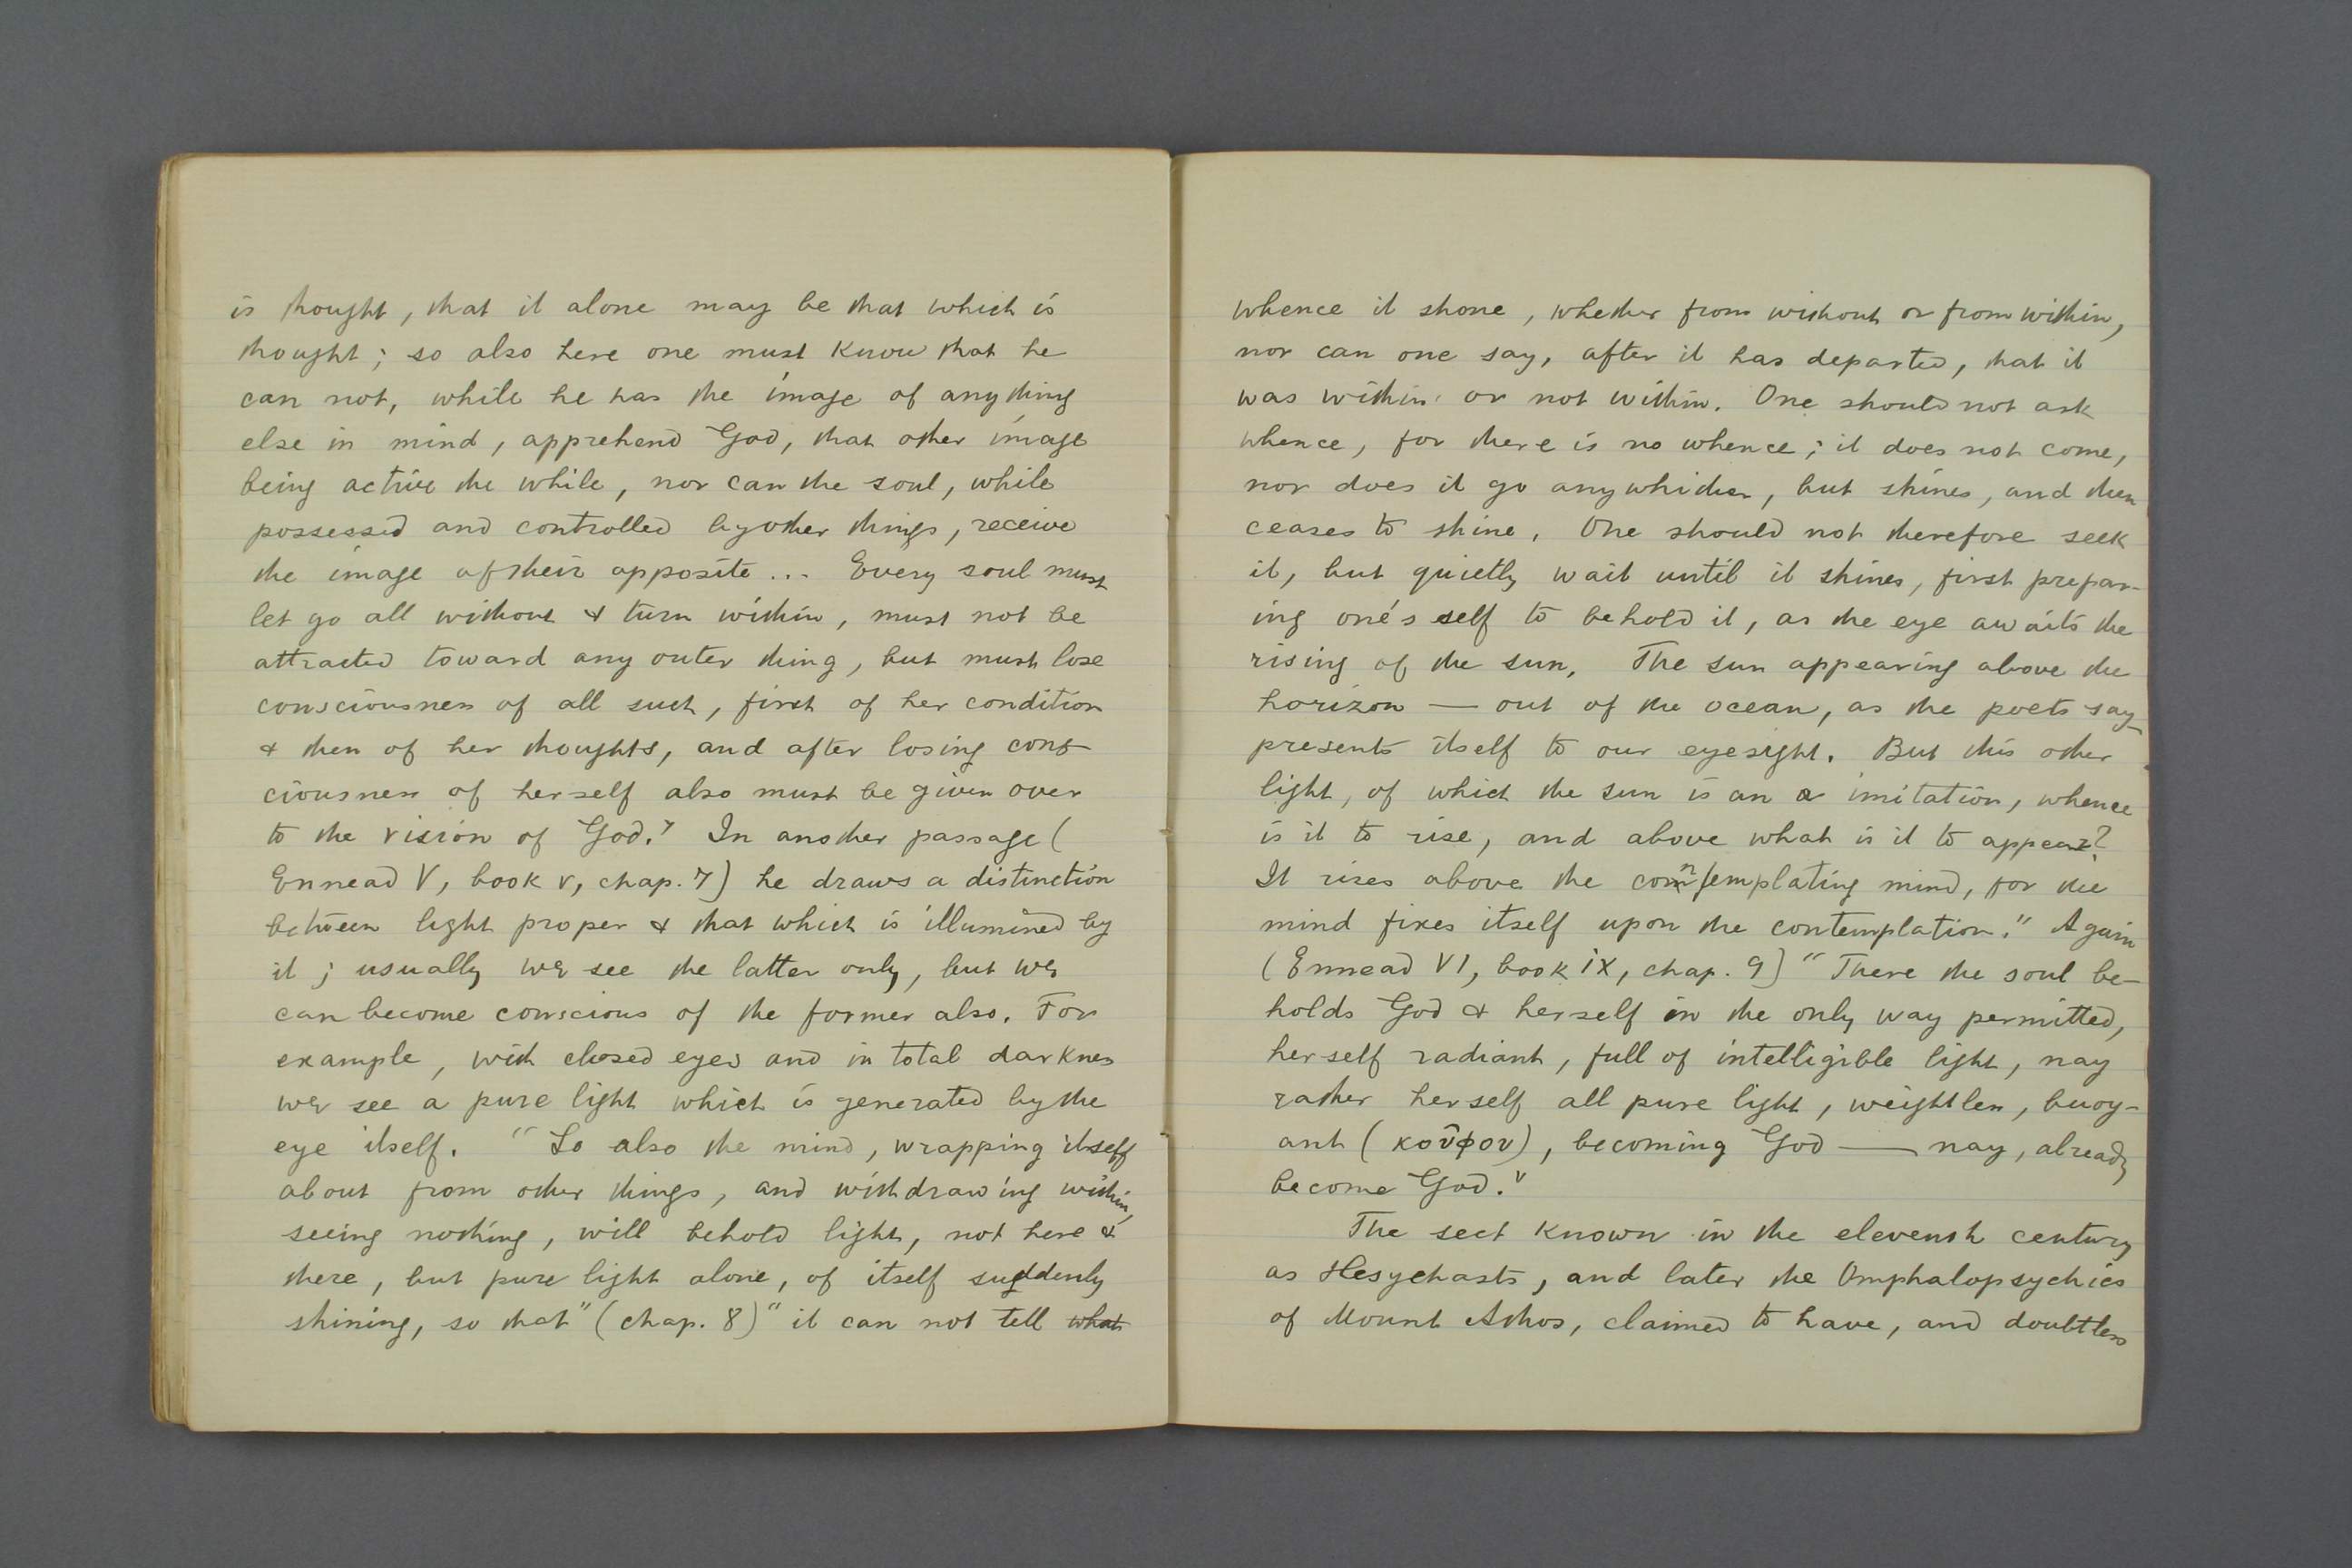 is thought, that it alone may be that which is
thought; so also here one must know that he
can not, while he has the image of anything
else in mind, apprehend God, that other image
being active the while, nor can the soul, while
possessed and controlled by other things, receive
the image of their opposite ... Every soul must
let go all without & turn within, must not be
attracted toward any outer thing, but must lose
consciousness of all such, first of her condition
& then of her thoughts, and after losing cons-
ciousness of herself also must be given over
to the vision of God." In another passage (
Ennead V, book V, chap. 7) he draws a distinction
between light proper & that which is illumined by
it; usually we see the latter only, but we
can become conscious of the former also. For
example, with closed eyes and in total darkness
we see a pure light which is generated by the
eye itself. "So also the mind, wrapping itself
about from other things, and withdrawing within,
seeing nothing, will behold light, not here &
there, but pure light alone, of itself suddenly
shining, so that" (chap. 8) "it can not tell what
whence it shone, whether from without or from within,
nor can one say, after it has departed, that it
was within or not within. One should not ask
whence, for there is no whence; it does not come,
nor does it go anywhither, but shines, and then
ceases to shine. One should not therefore seek
it, but quietly wait until it shines, first prepar-
ing one's self to behold it, as the eye awaits the
rising of the sun. The sun appearing above the
horizon — out of the ocean, as the poets say —
presents itself to our eyesight. But this other
light, of which the sun is an a imitation, whence
is it to rise, and above what is it to appear?
It rises above the contemplating mind, for the
mind fixes itself upon the contemplation." Again
(Ennead VI, book IX, chap. 9) "There the soul be-
holds God & herself in the only way permitted,
herself radiant, full of intelligible light, nay
rather herself all pure light, weightless, buoy-
ant (κοῦφον), becoming God — nay, already
become God."
The sect known in the eleventh century
as Hesychasts, and later the Omphalopsychics
of Mount Athos, claimed to have, and doubtless